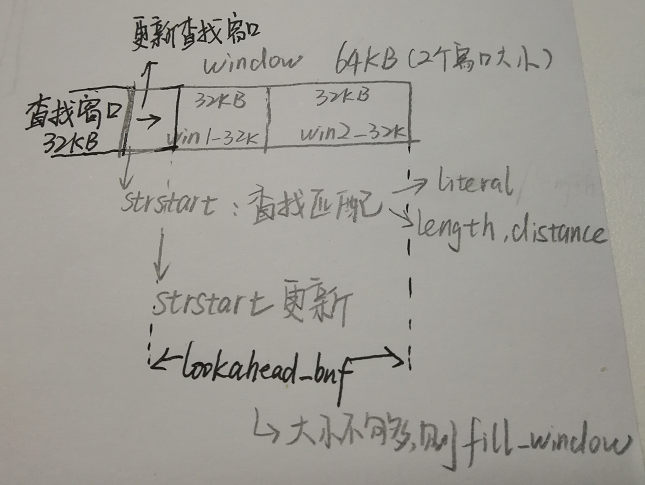 更新查找窗口
window 64KB(2个窗口大小)
查找窗口
32KB
32KB 32KB
win1-32K win2-32K
strstart:查找匹配
literal
length,distance
strstart更新
lookahead_buf
大小不够多,则fill_window